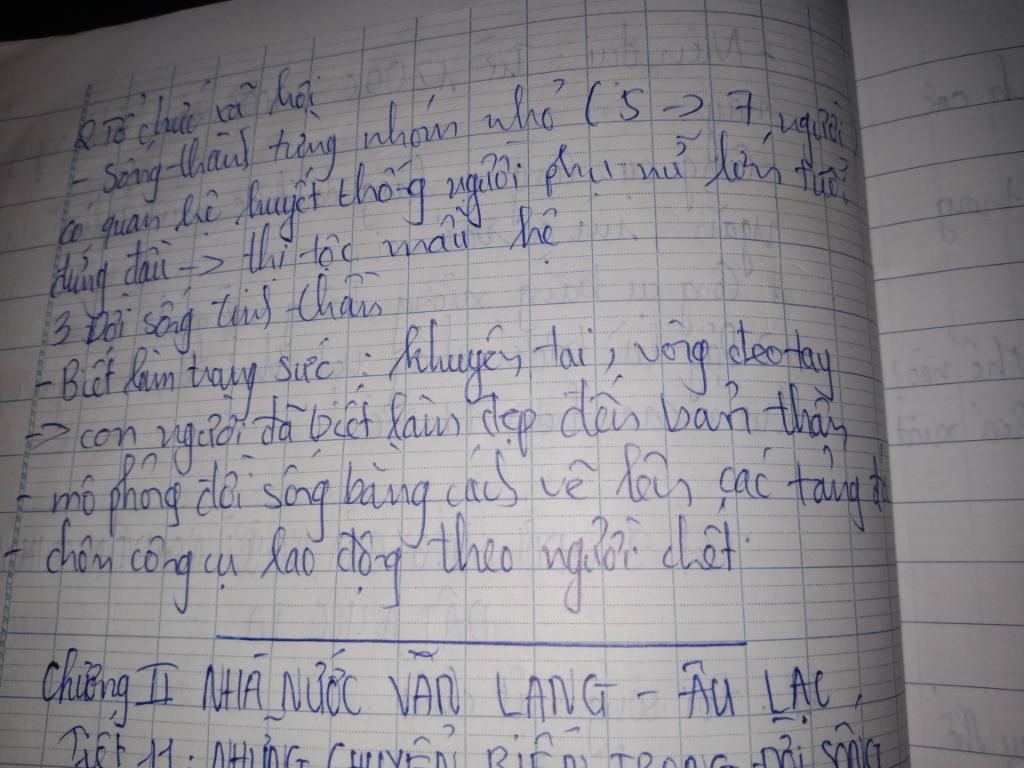 2 Tổ chức xã hội
- Sống thành từng nhóm nhỏ ( 5 -> 7 người
có quan hệ huyết thống người phụ nữ lớn tuổi
đứng đầu -> thị tộc mẫu hệ
3 Đời sống tinh thần
- Biết làm trang sức : khuyên tai, vòng đeo tay
-> con người đã biết làm đẹp đến bản thân
- mô phỏng đời sống bằng cách vẽ lên các tảng đá
- chôn công cụ lao động theo người chết.
Chương II NHÀ NƯỚC VĂN LANG - ÂU LẠC
Tiết 11: NHỮNG CHUYỂN BIẾN TRONG ĐỜI SỐNG